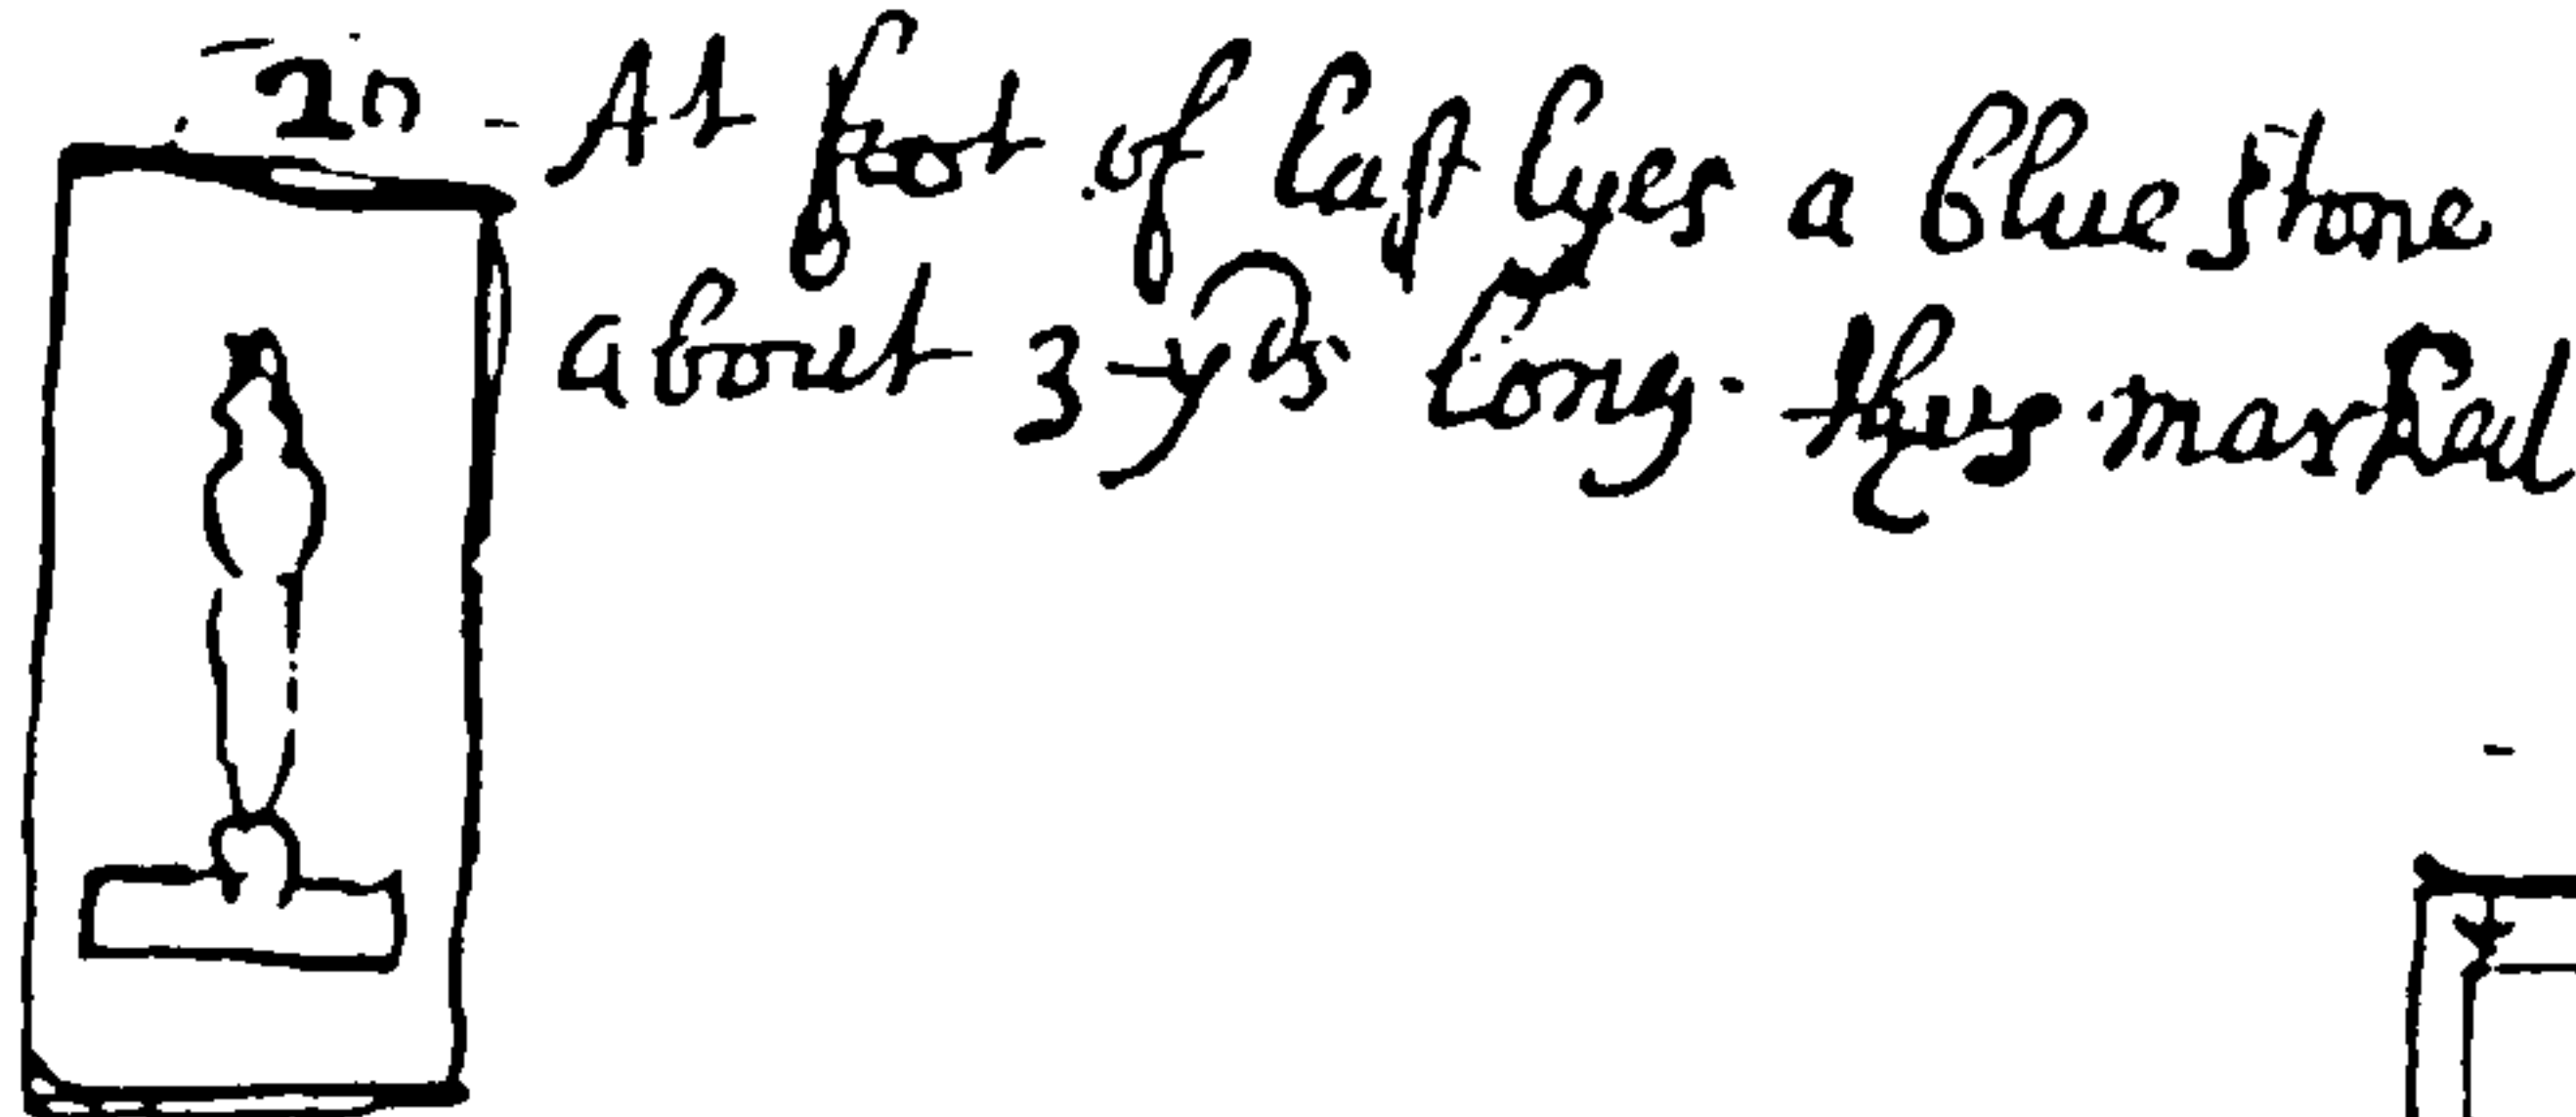 20 - At foot of last lyes a blue stone
about 3 yds long. thus marked